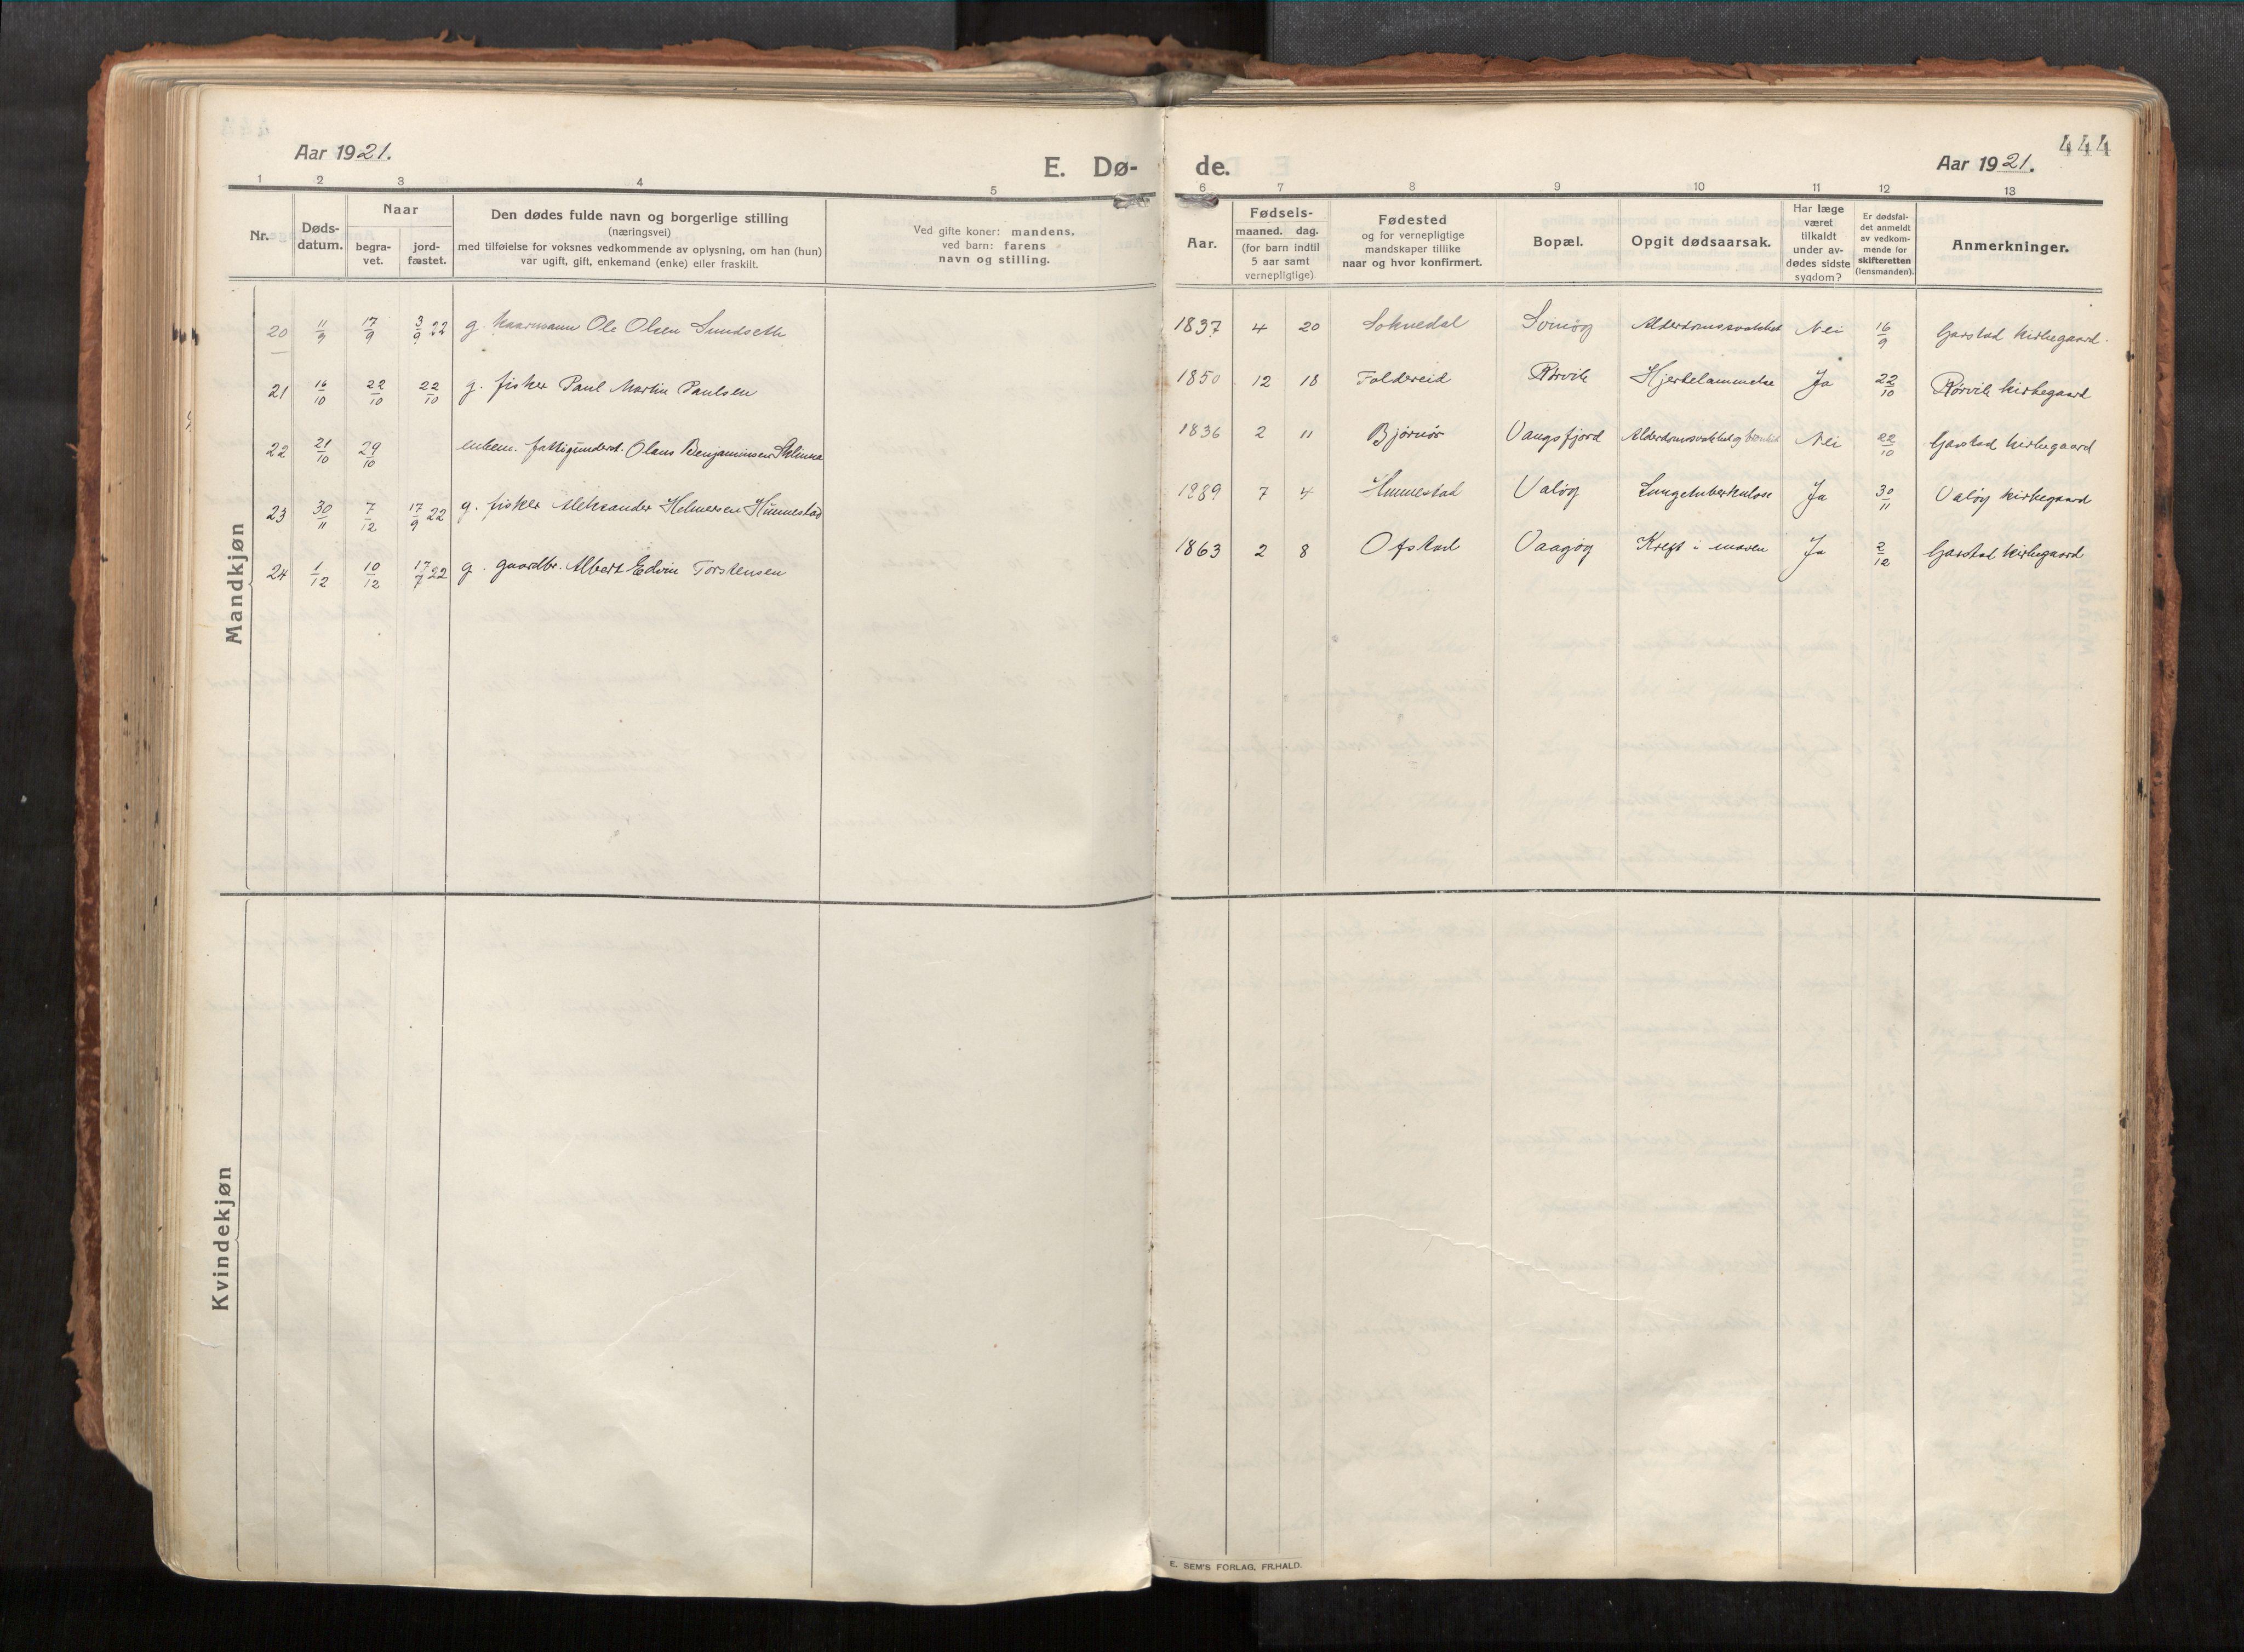 444
Aar 1921.
E. Dø-
de.
Aar 1921.
1 2 3 4 5 6 7 8 9 10 11 12 13
Nr.
Døds-
datum.
Naar
begra-
vet.
jord-
fæstet.
Den dødes fulde navn og borgerlige stilling
(næringsvei)
med tilføielse for voksnes vedkommende av oplysning, om han (hun)
var ugift, gift, enkemand (enke) eller fraskilt.
Ved gifte koner: mandens,
ved barn: farens
navn og stilling.
Aar.
Fødsels-
maaned. dag.
(for barn indtil
5 aar samt
vernepligtige)
Fødested
og for vernepligtige
mandskaper tillike
naar og hvor konfirmert.
Bopæl.
Opgit dødsaarsak.
Har læge
været
tilkaldt
under av-
dødes sidste
sygdom?
Er dødsfal-
det anmeldt
av vedkom-
mende for
skifteretten
(lensmanden).
Anmerkninger.
Mandkjøn
20 11/9 17/9 3/9 22 g. kaarmann Ole Olsen Sundseth 1837 4 20 Soknedal Svinøy Alderdomssvakhet Nei 16/9 Garstad kirkegaard.
21 16/10 22/10 22/10 g. fisker Paul Martin Paulsen 1850 12 18 Foldereid Rørvik Hjertelammelse Ja 22/10 Rørvik kirkegaard
22 21/10 29/10 enkem. fattigunderst. Olaus Benjaminsen 1836 2 11 Bjørnør Vangsfjord Alderdomssvakhet og Nei 22/10 Garstad kirkegaard
23 30/11 7/12 17/9 22 g. fisker Aleksander Helmersen Hunnestad 1889 7 4 Hunnestad Valøy Lungetuberkulose Ja 30/11 Valøy kirkegaard
24 1/12 10/12 17/7 22 g. gaardbr. Albert Edvin Torstensen 1863 2 8 Ofstad Vaagøy Kreft i maven Ja 2/12 Garstad kirkegaard
Kvindekjøn
E. SEM'S FORLAG, FR.HALD.